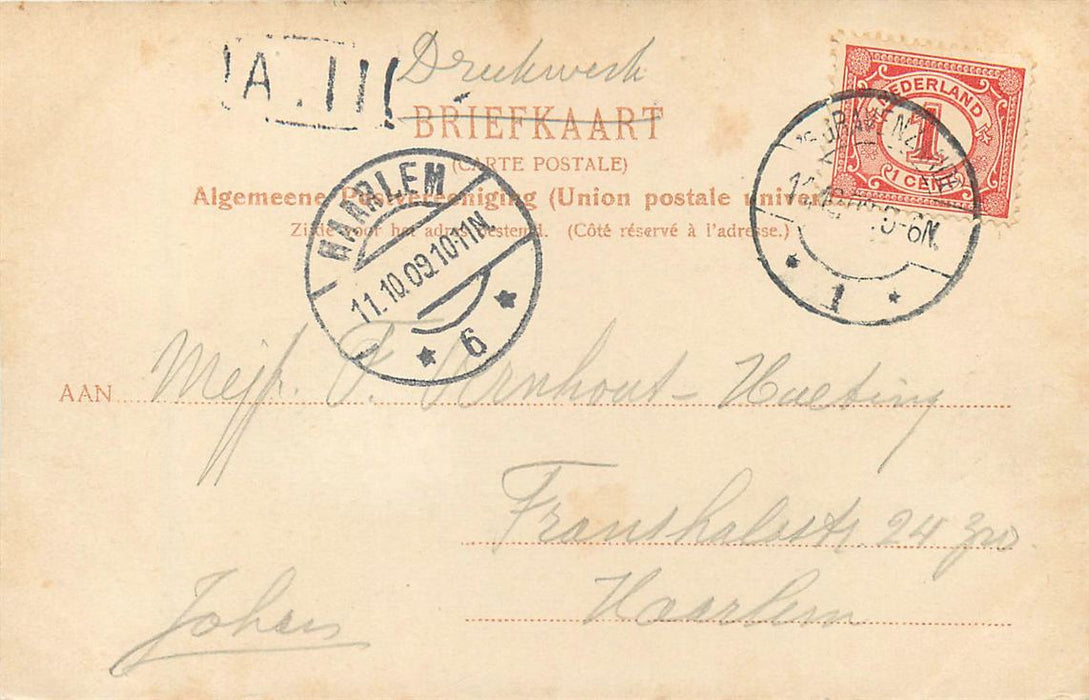 A. III
Drukwerk
BRIEFKAART
(CARTE POSTALE)
Algemeene Postvereeniging (Union postale univer
Zijde voor het adres bestemd. (Côté réservé à l'adresse.)
NEDERLAND
1
1 CENT
5-6N.
1
HAARLEM
11.10.09 10-11N
6
AAN Mejf. F. Arnhout- Hueting
Franshalsstr. 24 zw
Haarlem
Johan